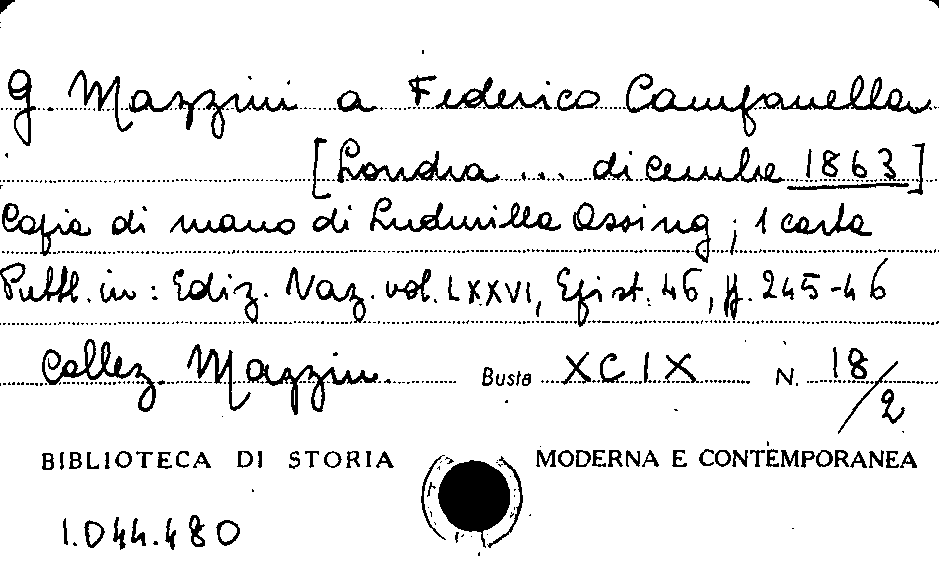 G. Mazzini a Federico Campanella
[Londra ... dicembre 1863]
Copia di mano di Ludmilla Assing; 1 carta
Pubbl. in: Ediz. Naz. vol. LXXVI, Epist. 46, pp. 245-46
Collez. Mazzini Busta XCIX N. 18/2
BIBLIOTECA DI STORIA MODERNA E CONTEMPORANEA
1.044.480